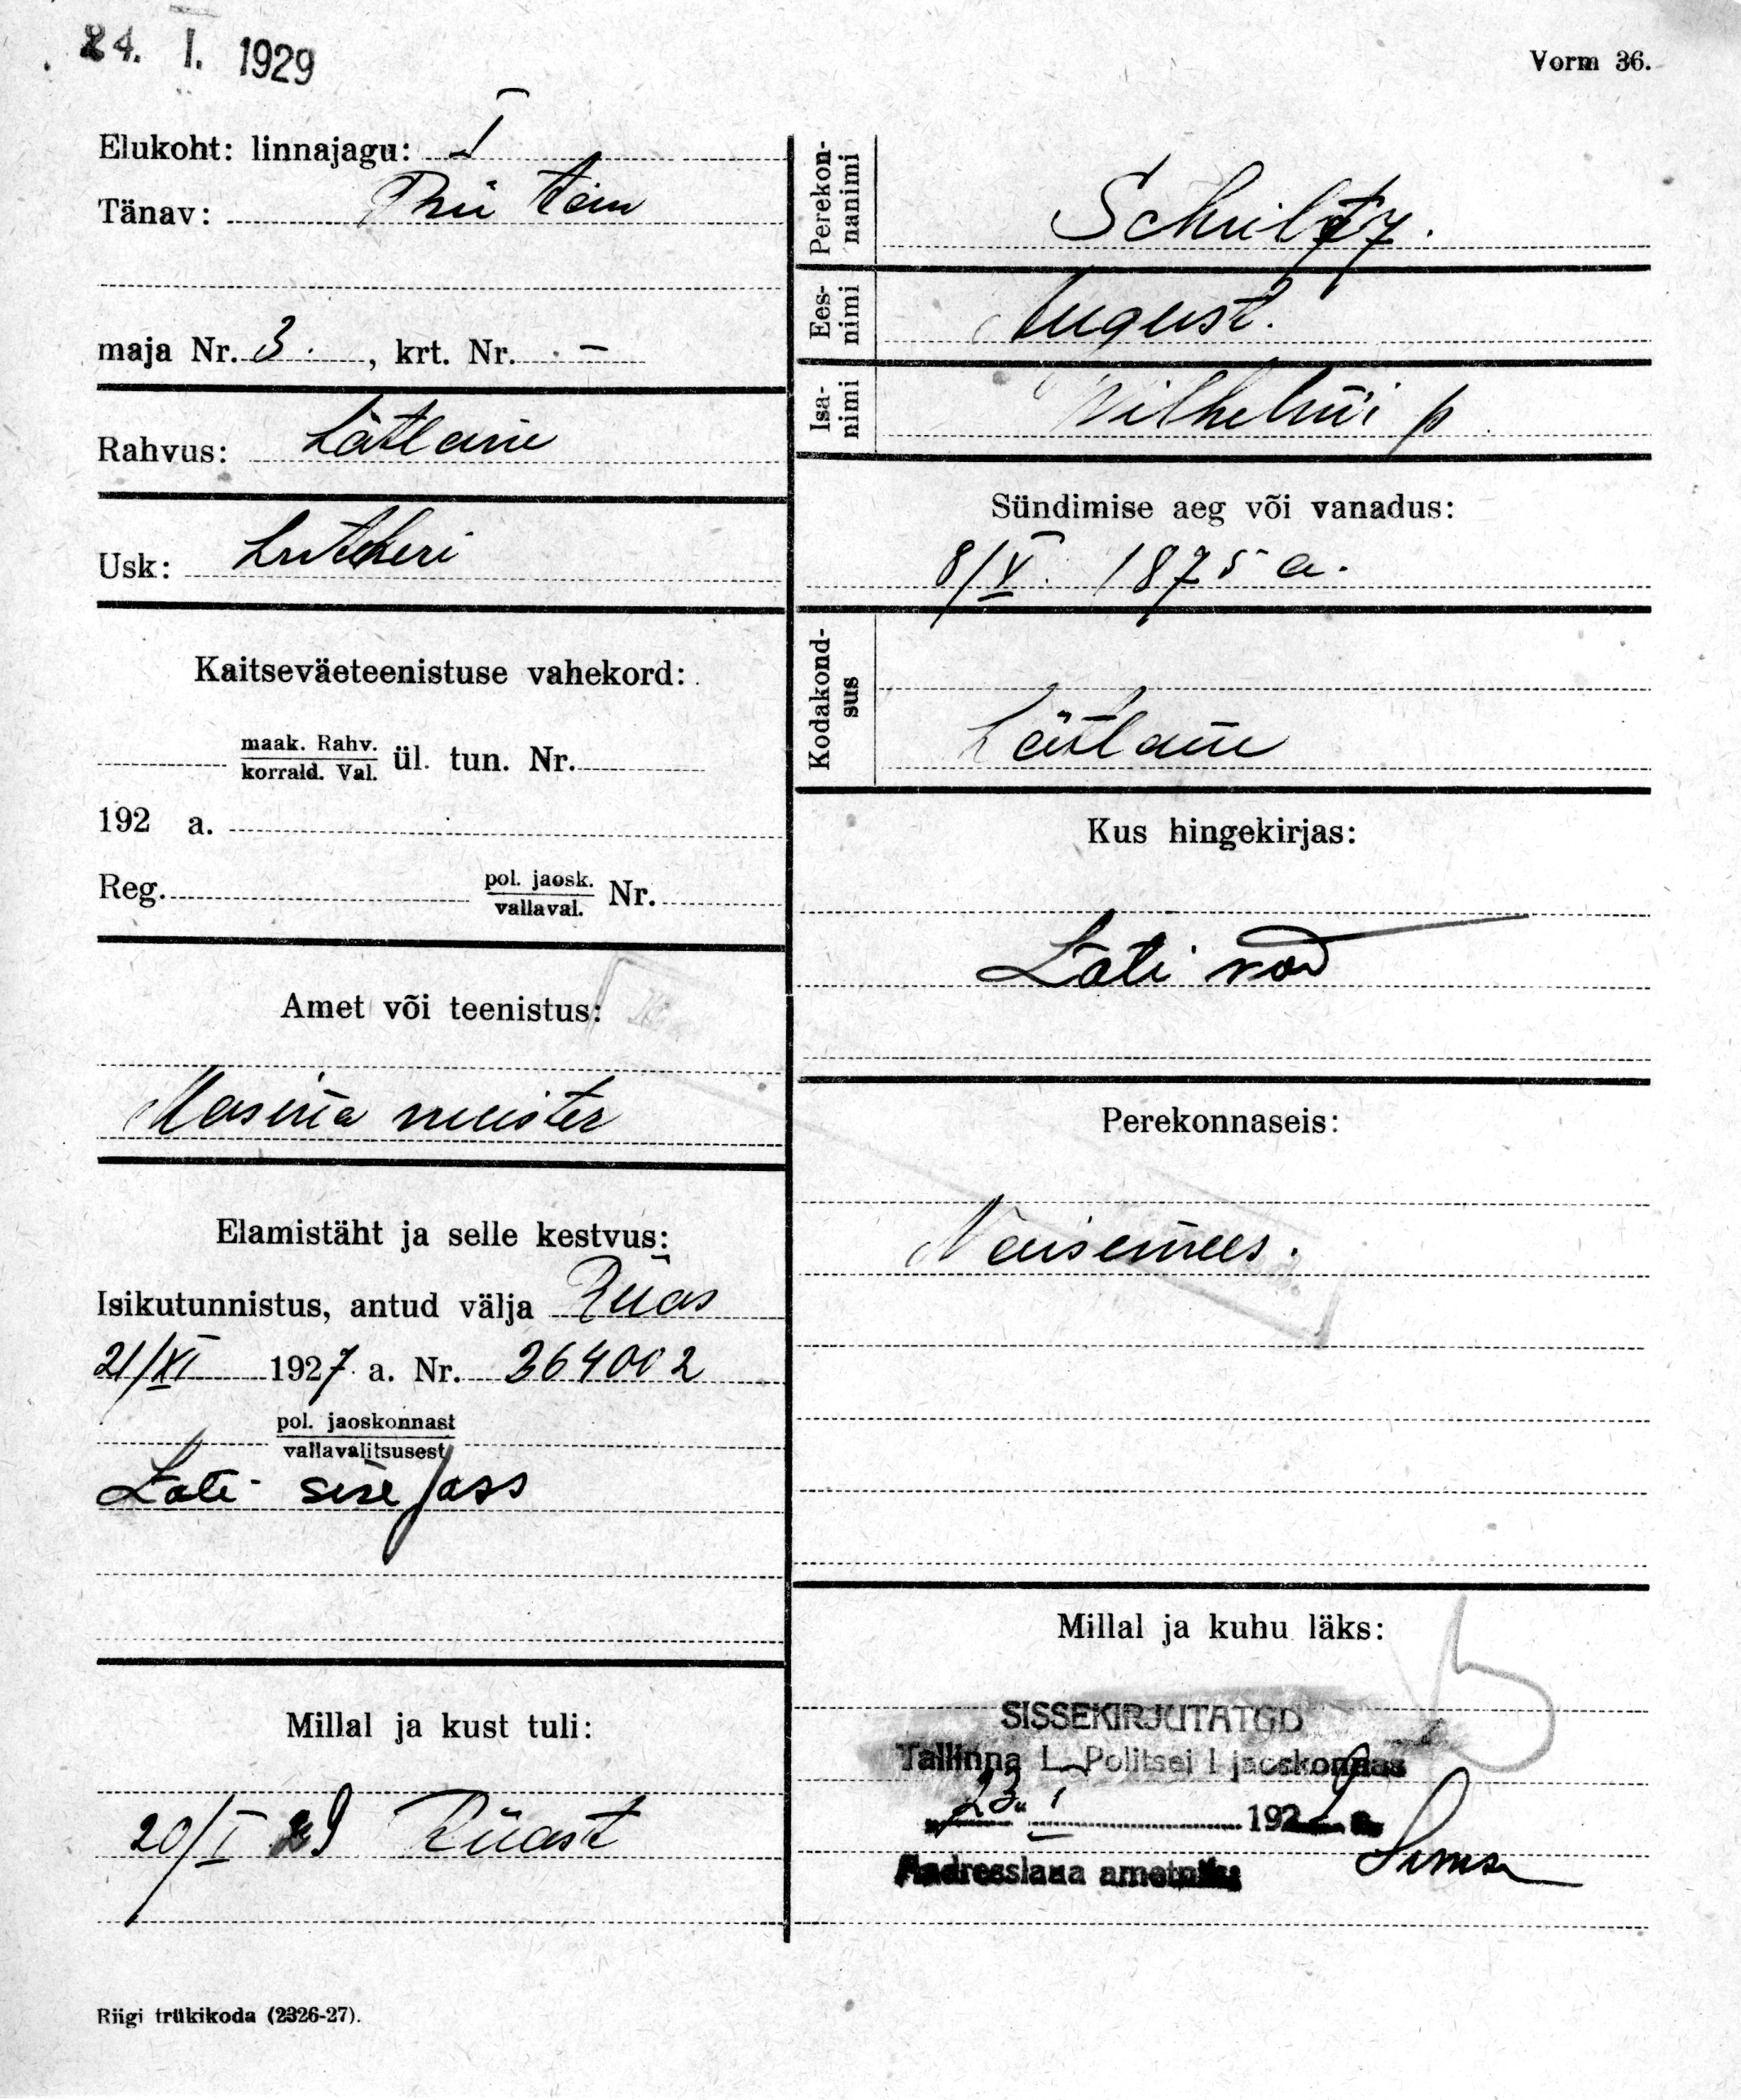 24. I. 1929
Vorm 36.
Elukoht: linnajagu: I
Tänav:
maja Nr. 3. , krt. Nr. -
Rahvus: Lätlane
Usk: Lutheri
Kaitseväeteenistuse vahekord:
maak. Rahv.
korrald. Val. ül. tun. Nr.
192 a.
Reg. pol. jaosk.
vallaval. Nr.
Amet või teenistus:
Masina meister
Elamistäht ja selle kestvus:
Isikutunnistus, antud välja Riias
21/XI 1927 a. Nr. 364002
pol. jaoskonnast
vallavalitsusest
Läti sise pass
Millal ja kust tuli:
20/I 29 Riiast
Riigi trükikoda (2326-27).
Perekon-
nanimi
Ees-
nimi August.
Isa-
nimi Wilhelmi p
Sündimise aeg või vanadus:
8/V. 1875 a.
Kodakond-
sus Lätlane
Kus hingekirjas:
Läti
Perekonnaseis:
Naisemees.
Millal ja kuhu läks:
SISSEKIRJUTATUD
Tallinna L. Politsei I jaoskonnas
"23" I 1929 a.
Aadresslaua ametnik: